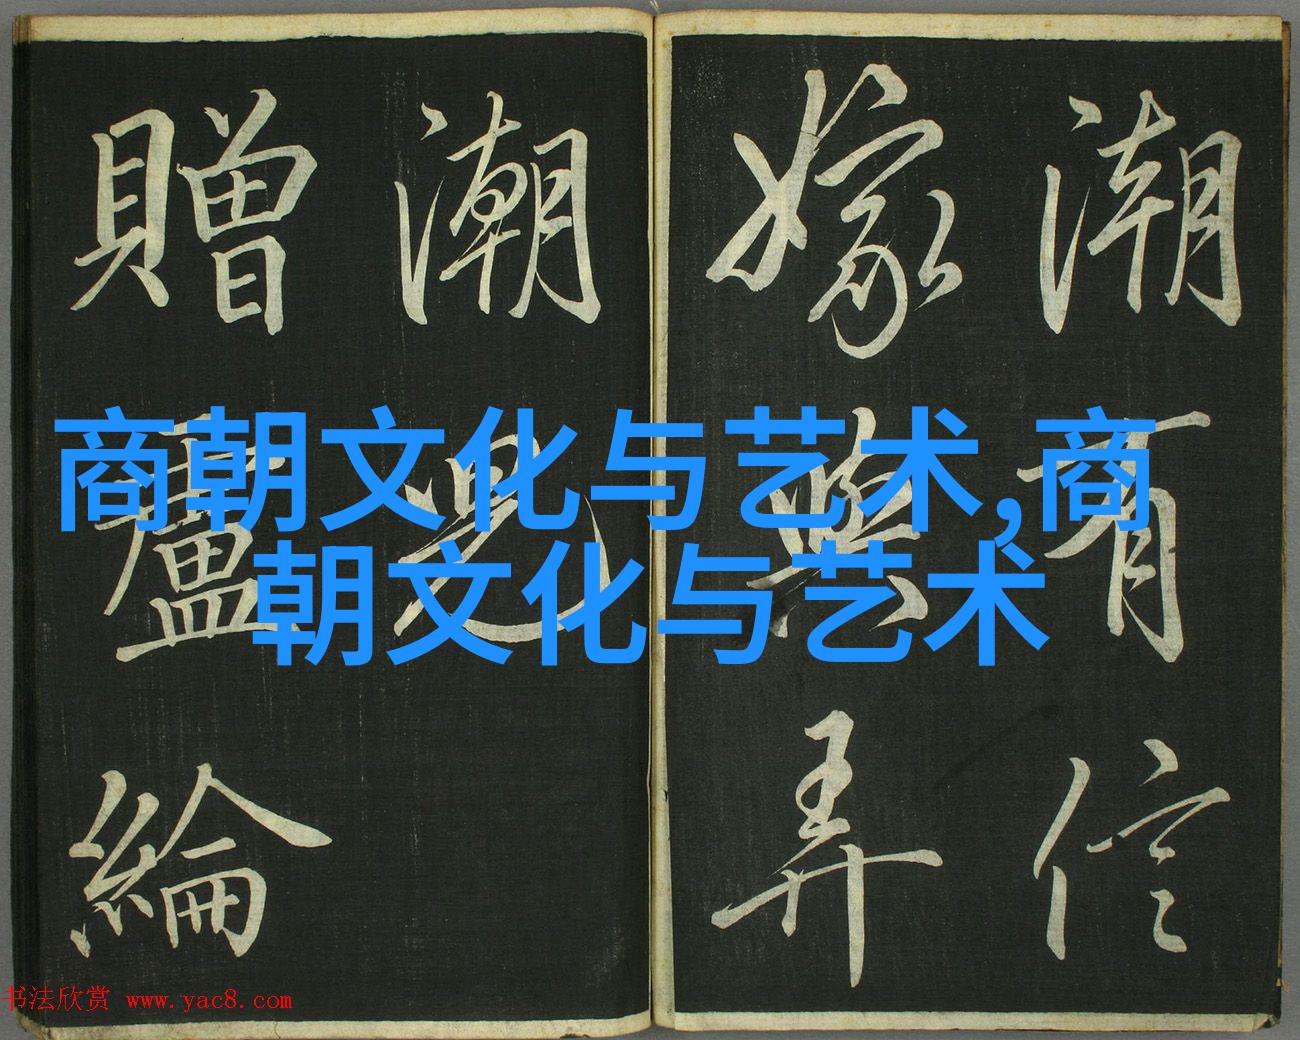 潮有信
嫁與弄
潮兒
贈盧綸
商朝文化与艺术,商
朝文化与艺术
书法欣赏 www.yac8.com